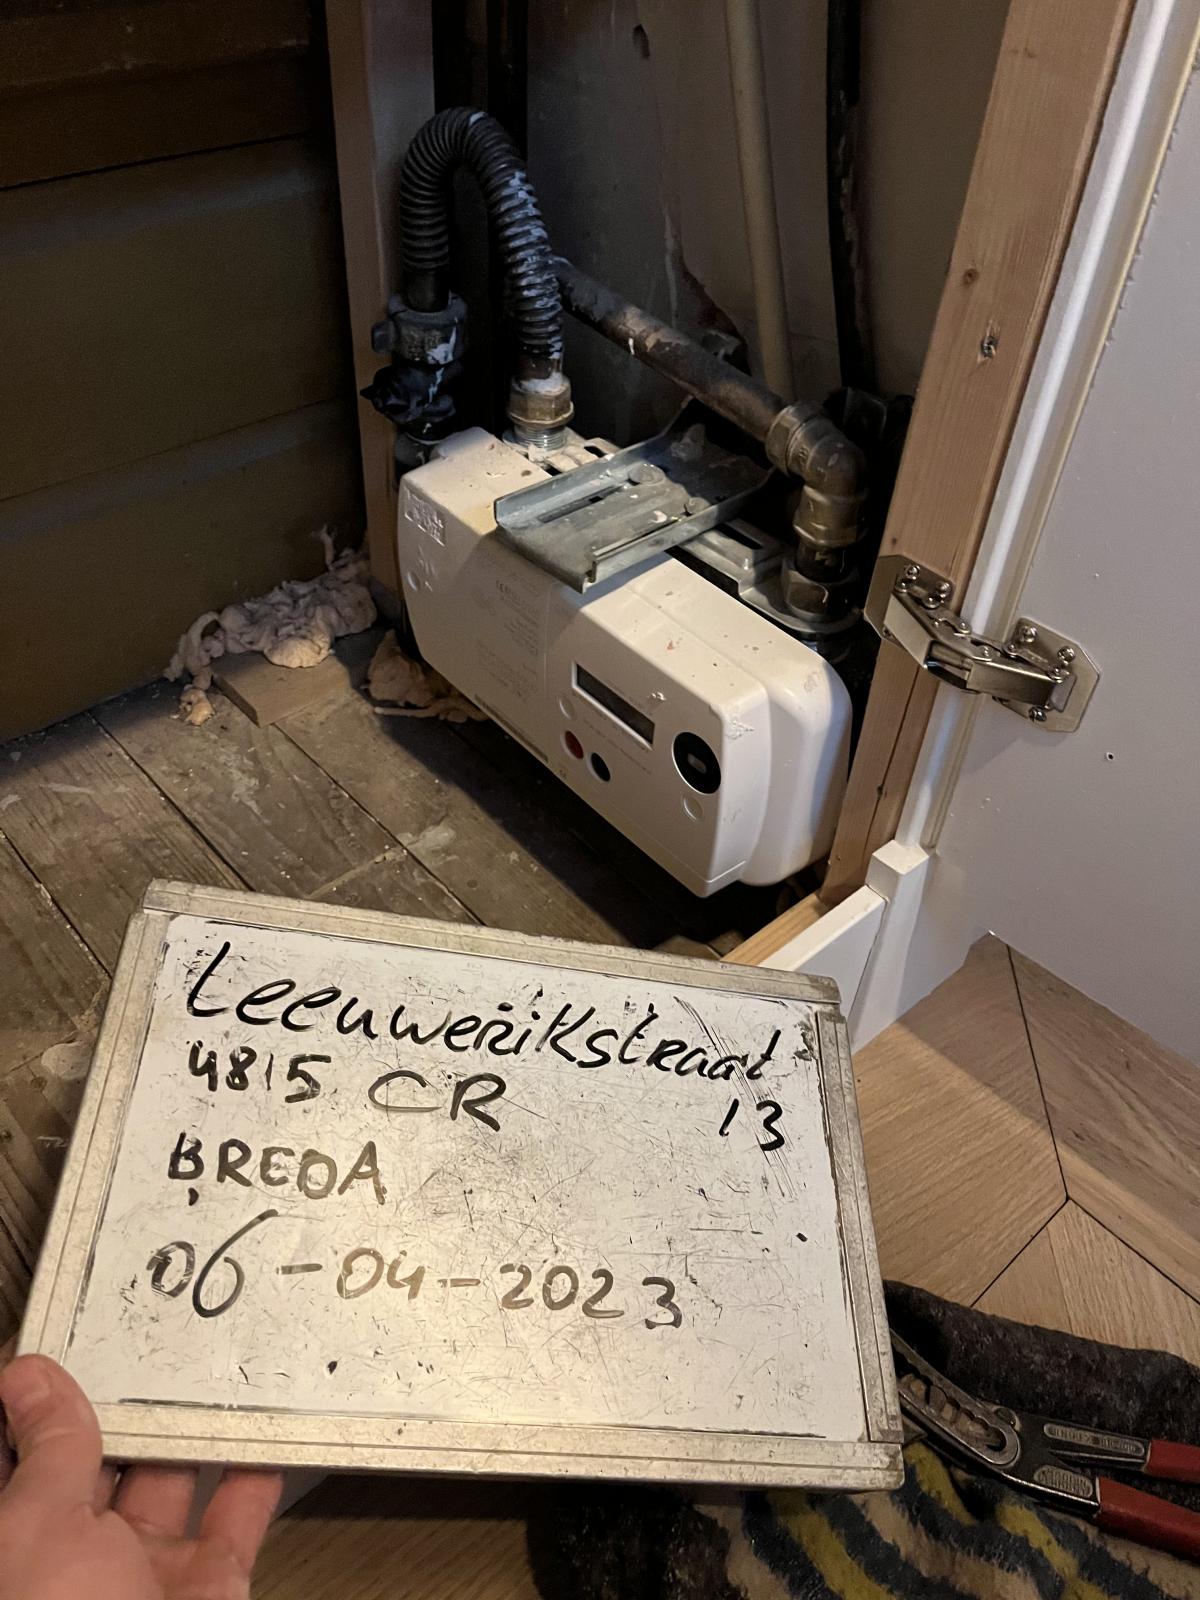 Leeuwerikstraat
13
4815 CR
BREDA
06-04-2023